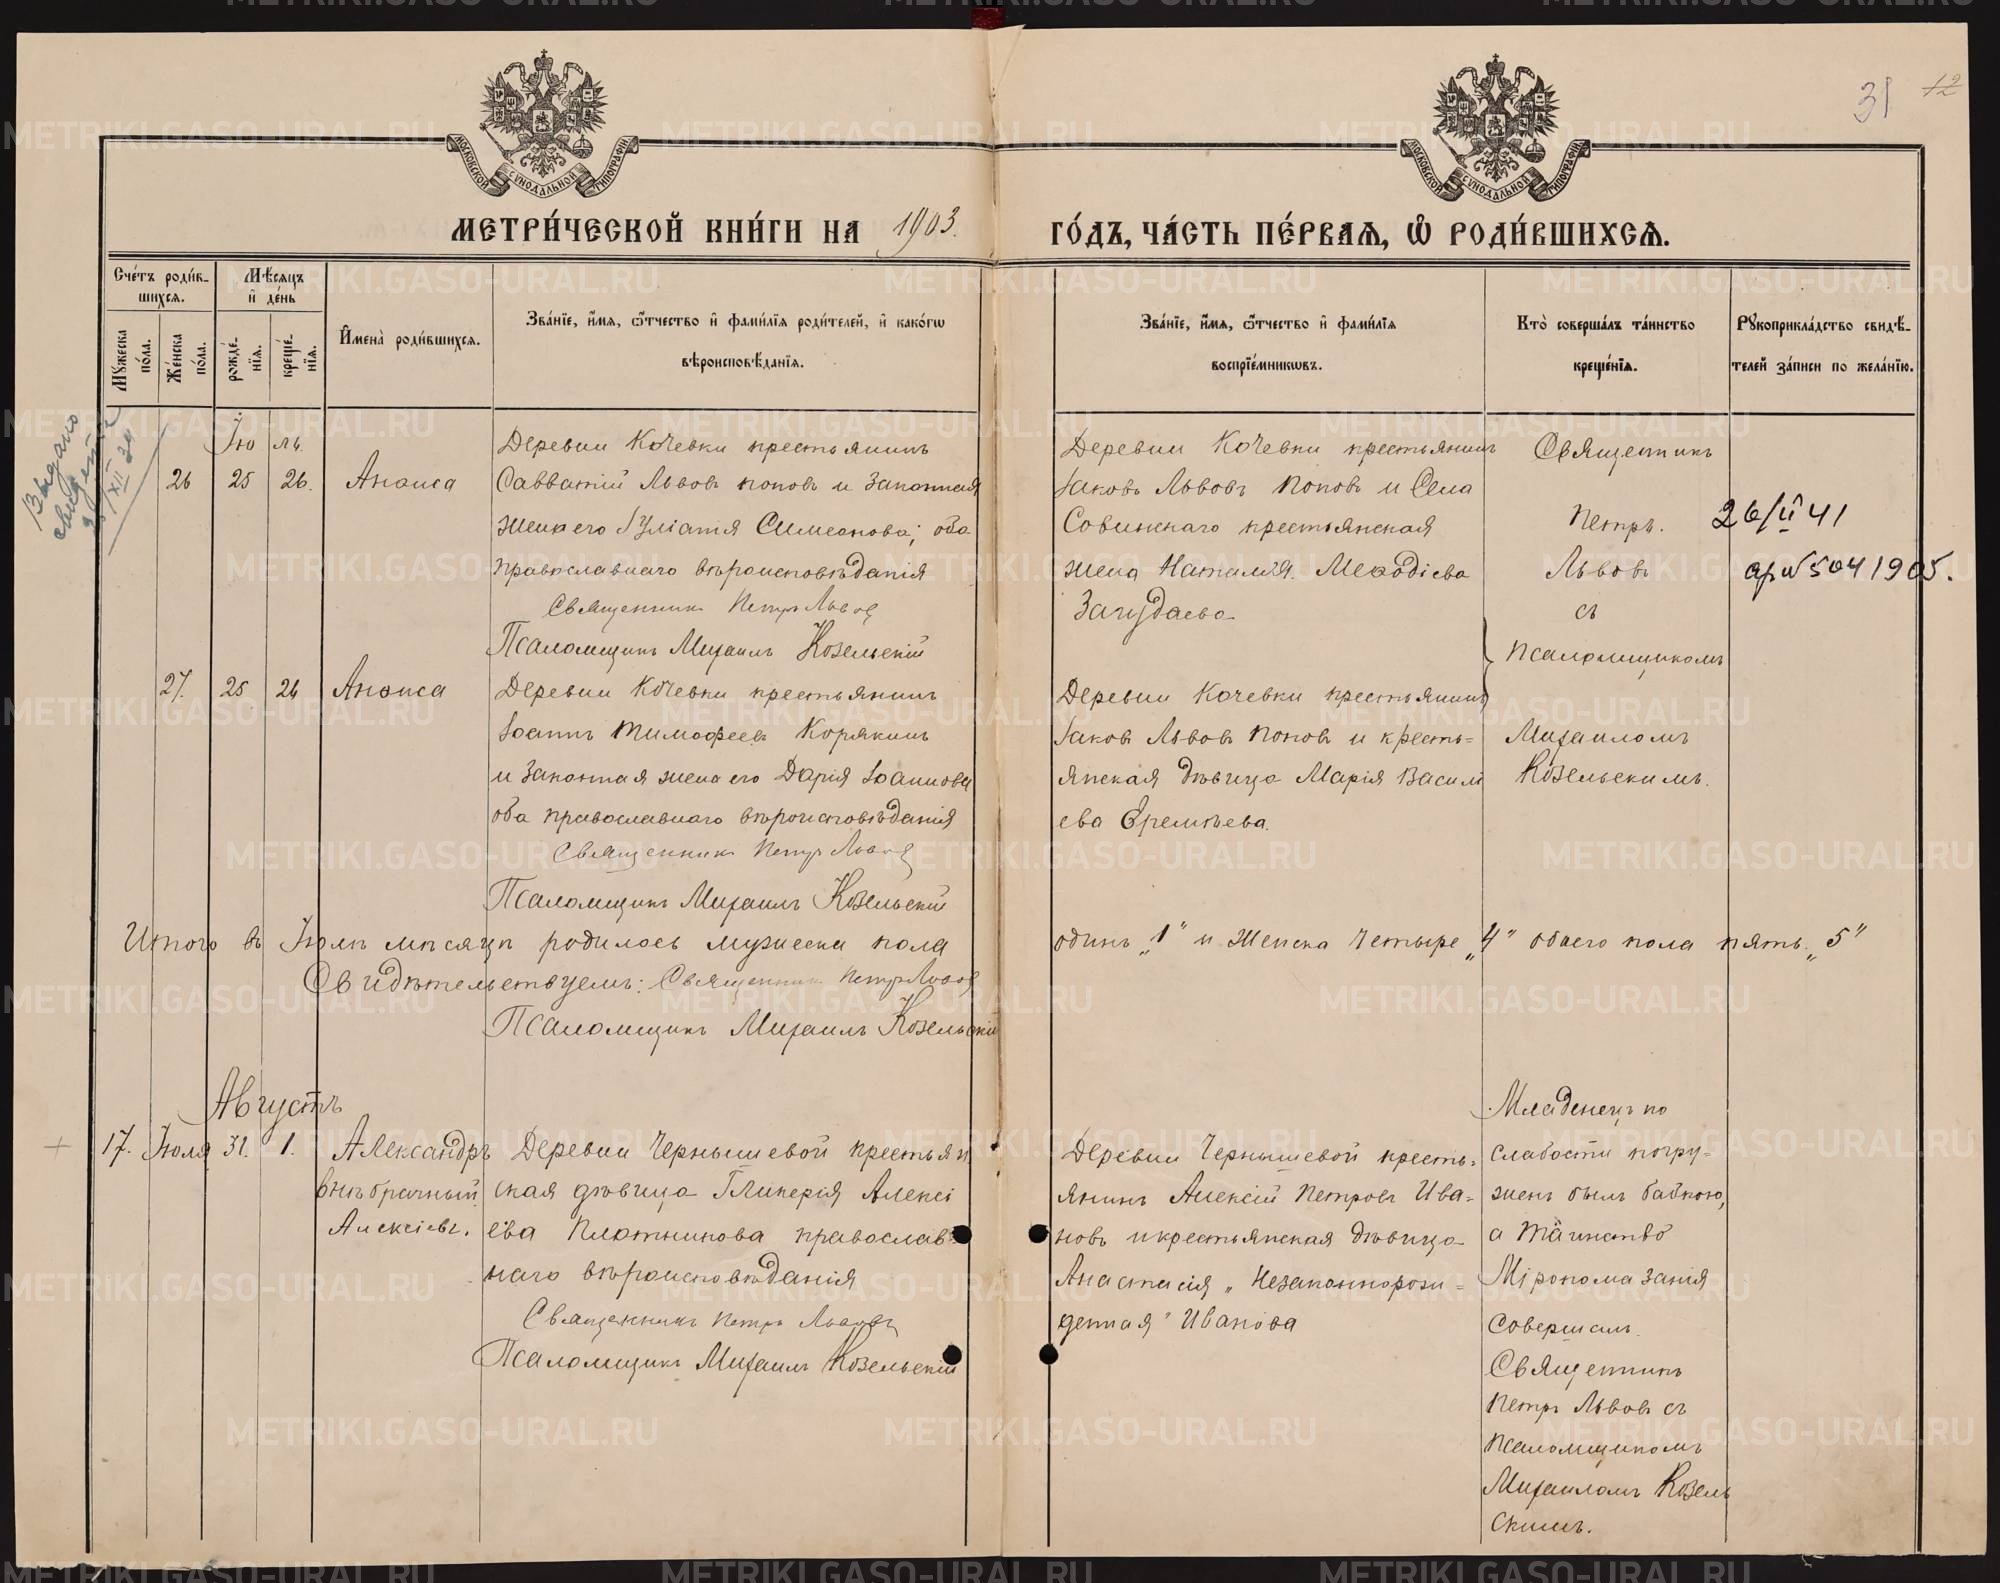 31 12
МОСКОВСКОЙ СѴНОДАЛЬНОЙ ТИПОГРАФІИ
МОСКОВСКОЙ СѴНОДАЛЬНОЙ ТИПОГРАФІИ
МЕТРИ́ЧЕСКОЙ КНИ́ГИ НА 1903.
ГО́ДЪ, ЧА́СТЬ ПЕ́РВАѦ, Ѡ РОДИ́ВШИХСѦ.
Сче́тъ роди́в-
шихсѧ.
Мꙋжеска по́ла.
Же́нска по́ла.
Мѣ́сѧцъ
и де́нь
рожде́-
нїѧ.
креще́-
нїѧ.
Имена̀ роди́вшихсѧ.
Зва́нїе, и́мѧ, ѻ҆́тчество и фами́лїѧ роди́телей, и како́гѡ
вѣроисповѣ́данїѧ.
Зва́нїе, и́мѧ, ѻ҆́тчество и фами́лїѧ
воспрїе́мникѡвъ.
Кто̀ соверша́лъ та́инство
креще́нїѧ.
Рꙋкоприкла́дство свидѣ́-
телей за́писи по жела́нїю.
Выдано
свидет
Іюль.
26 25 26. Анѳиса
Деревни Кочевки крестьянинъ
Савватій Львовъ Поповъ и законная
жена его Іуліанія Симеонова; оба
православнаго вѣроисповѣданія
Священникъ Петръ Львовъ
Псаломщикъ Михаилъ Козельскій
Деревни Кочевки крестьянинъ
Іаковъ Львовъ Поповъ и села
Совинскаго крестьянская
жена Наталія Меѳодіева
Загудаева
Священникъ
Петръ.
Львовъ
съ
Псаломщикомъ
Михаиломъ
Козельскимъ.
26/II 41
1905.
27. 25 26 Анѳиса
Деревни Кочевки крестьянинъ
Іоаннъ Тимоѳеевъ Корякинъ
и законная жена его Дарія Іоаннова
оба православнаго вѣроисповѣданія
Священникъ Петръ Львовъ
Псаломщикъ Михаилъ Козельскій
Деревни Кочевки крестьянинъ
Іаковъ Львовъ Поповъ и кресть=
янская дѣвица Марія Васильева
Еремѣева.
Итого въ Іюлѣ мѣсяцѣ родилось мужеска пола одинъ „1" и женска четыре „4" обоего пола пять. „5"
Свидѣтельствуемъ: Священникъ Петръ Львовъ
Псаломщикъ Михаилъ Козельскій
Августъ
17. Іюля 31. 1. Александръ
внѣбрачный
Алексіевъ.
Деревни Чернышевой крестьян
ская дѣвица Гликерія Алексі
ева Плотникова православ=
наго вѣроисповѣданія
Священникъ Петръ Львовъ
Псаломщикъ Михаилъ Козельскій
Деревни Чернышевой кресть=
янинъ Алексій Петровъ Ива=
новъ и крестьянская дѣвица
Анастасія „Незаконнорож=
денная" Иванова
Младенецъ по
слабости погру=
женъ былъ бабкою,
а Таинство
Мѵропомазанія
совершилъ
Священникъ
Петръ Львовъ съ
Псаломщикомъ
Михаиломъ Козель
скимъ.
METRIKI.GASO-URAL.RU